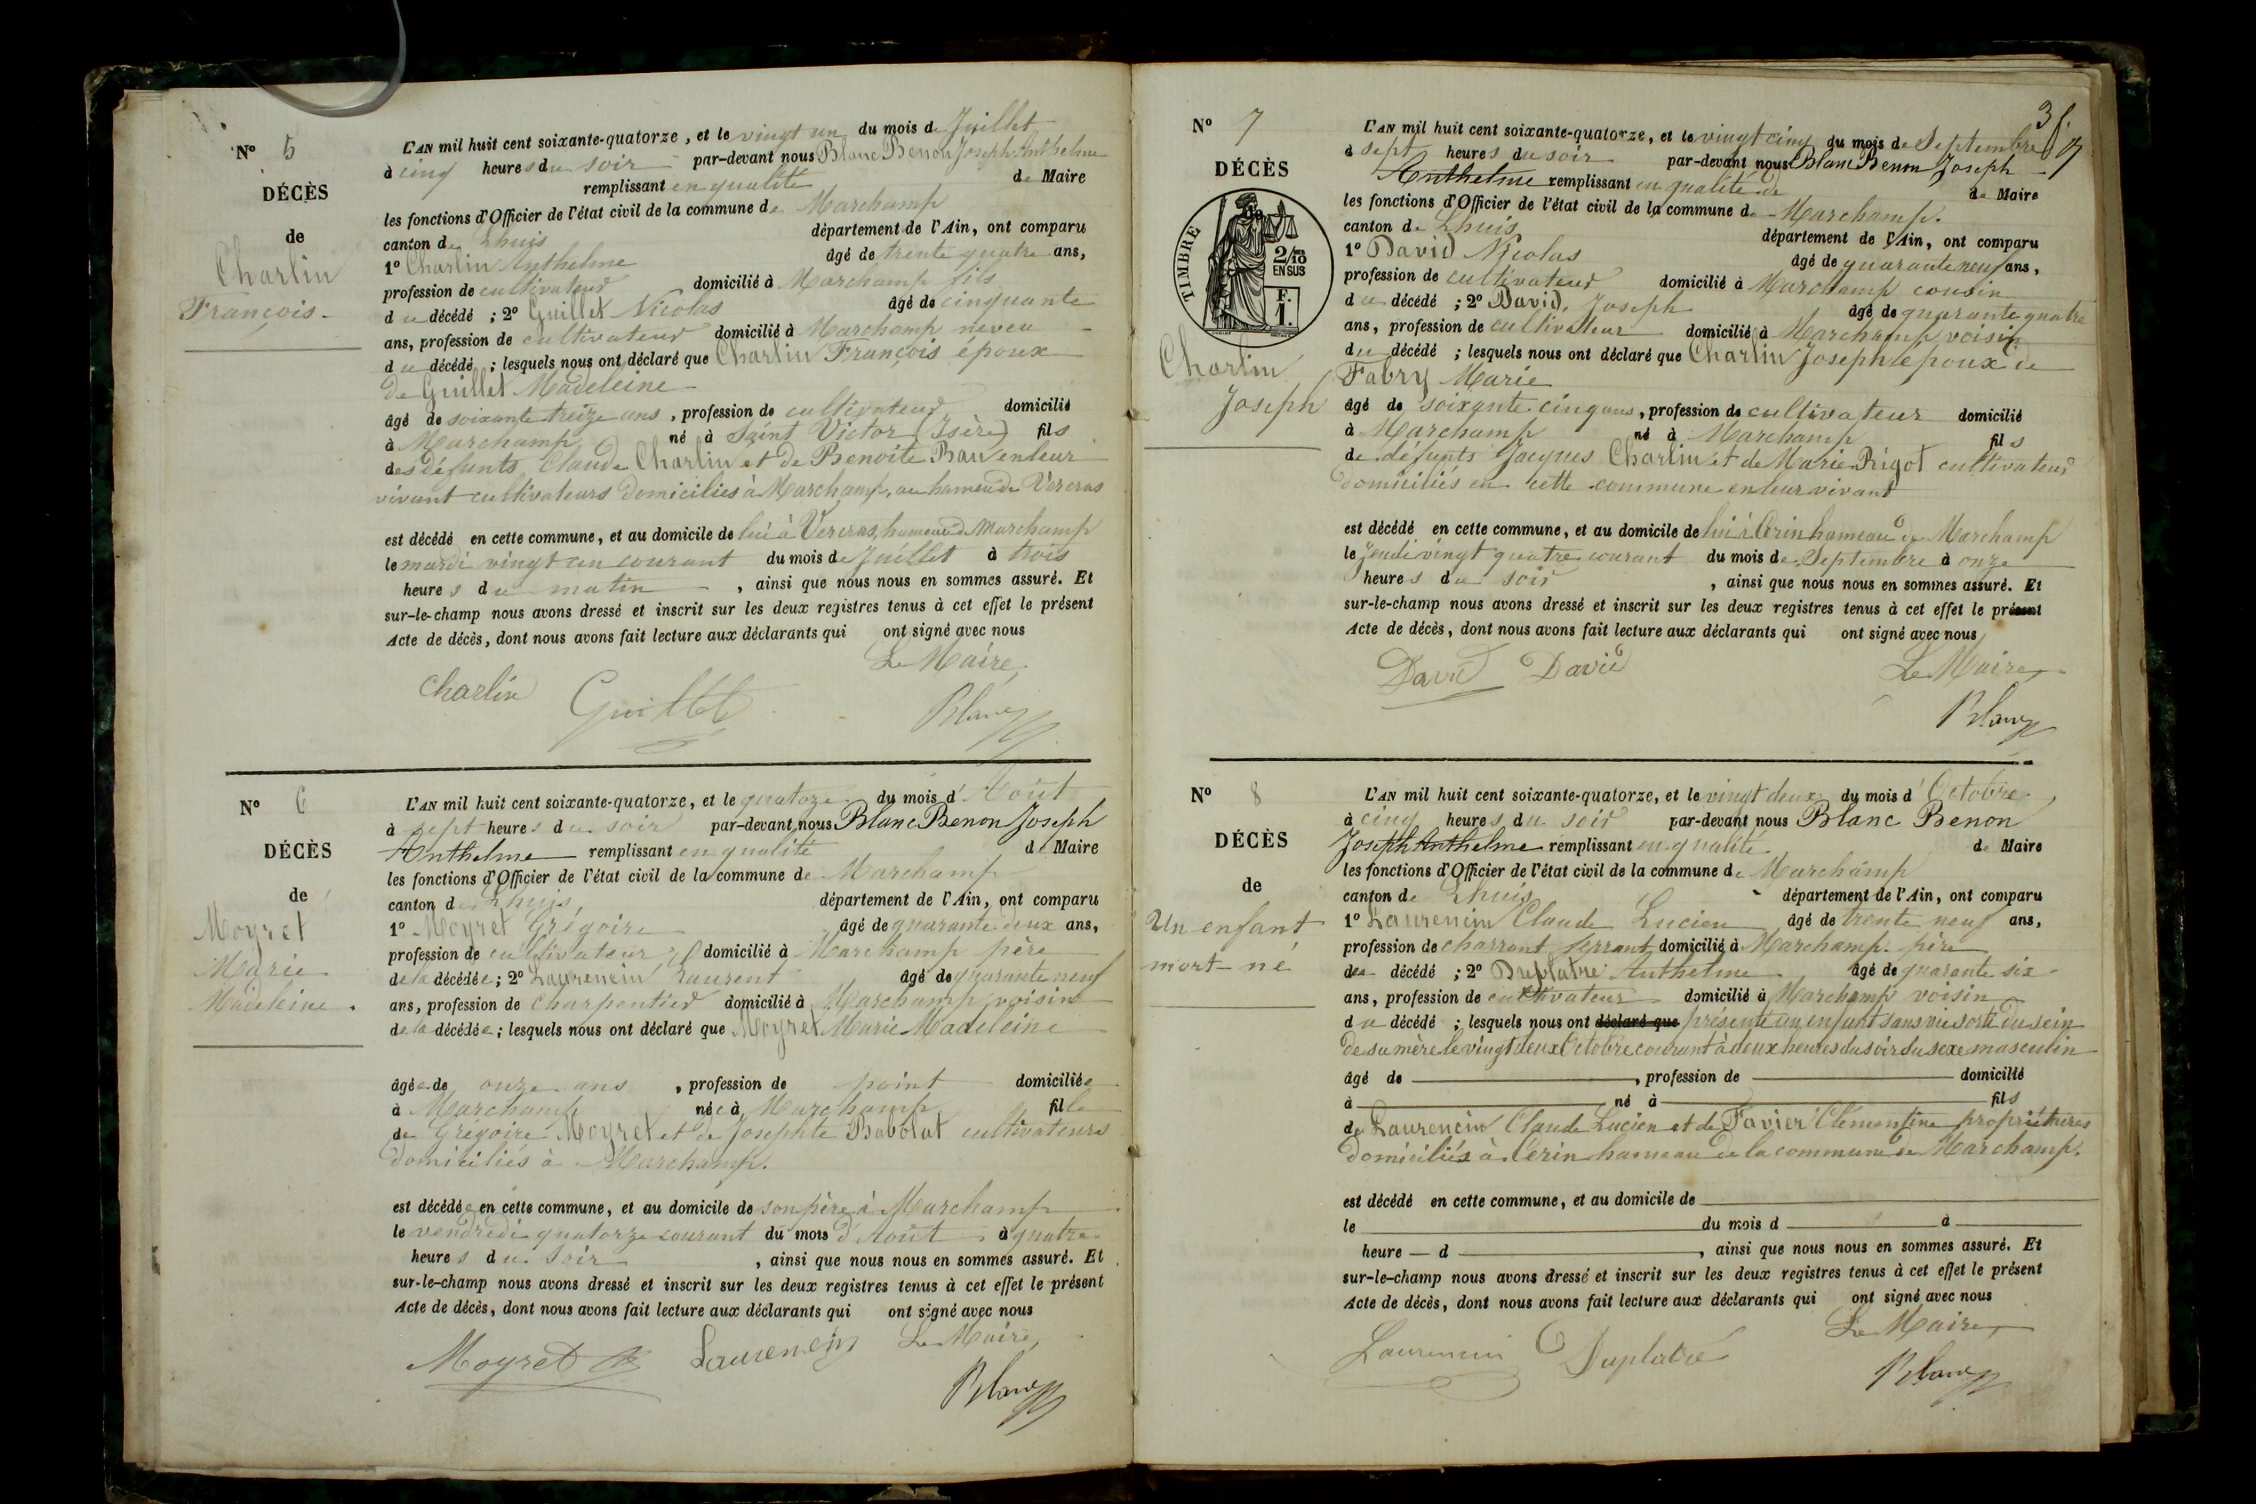 N° 5
DÉCÈS
de
Charlin
François
L'AN mil huit cent soixante-quatorze, et le vingt un du mois de Juillet
à cinq heures du soir par-devant nous Blanc Benon Joseph Anthelme
remplissant en qualité de Maire
les fonctions d'Officier de l'état civil de la commune de Marchamp
canton de Lhuis département de l'Ain, ont comparu
1° Charlin Anthelme âgé de trente quatre ans,
profession de cultivateur domicilié à Marchamp fils
du décédé ; 2° Guillet Nicolas âgé de cinquante
ans, profession de cultivateur domicilié à Marchamp neveu
du décédé ; lesquels nous ont déclaré que Charlin François époux
de Guillet Madeleine
âgé de soixante treize ans, profession de cultivateur domicilié
à Marchamp né à Saint Victor (Isère) fils
des défunts Claude Charlin et de Benoite en leur
vivant cultivateurs domiciliés à Marchamp, au hameau de Vercras
est décédé en cette commune, et au domicile de lui à Vercras, hameau de Marchamp
le mardi vingt un courant du mois de Juillet à trois
heures du matin, ainsi que nous nous en sommes assuré. Et
sur-le-champ nous avons dressé et inscrit sur les deux registres tenus à cet effet le présent
Acte de décès, dont nous avons fait lecture aux déclarants qui ont signé avec nous
Le Maire
Charlin Guillet Blanc
N° 6
DÉCÈS
de
Moyret
Marie
Madeleine.
L'AN mil huit cent soixante-quatorze, et le quatorze du mois d'Août
à sept heures du soir par-devant nous Blanc Benon Joseph
Anthelme remplissant en qualité de Maire
les fonctions d'Officier de l'état civil de la commune de Marchamp
canton de Lhuis, département de l'Ain, ont comparu
1° Moyret Grégoire âgé de quarante deux ans,
profession de cultivateur domicilié à Marchamp père
de la décédée ; 2° Laurencin Laurent âgé de quarante neuf
ans, profession de charpentier domicilié à Marchamp voisin
de la décédée ; lesquels nous ont déclaré que Moyret Marie Madeleine
âgée de onze ans, profession de point domiciliée
à Marchamp née à Marchamp fille
de Grégoire Moyret et de Josephte Babolat cultivateurs
domiciliés à Marchamp.
est décédée en cette commune, et au domicile de son père à Marchamp
le vendredi quatorze courant du mois d'Août à quatre
heures du soir, ainsi que nous nous en sommes assuré. Et
sur-le-champ nous avons dressé et inscrit sur les deux registres tenus à cet effet le présent
Acte de décès, dont nous avons fait lecture aux déclarants qui ont signé avec nous
Le Maire,
Moyret Laurencin
Blanc
N° 7
DÉCÈS
de
TIMBRE
2/10
EN SUS
F.
1.
Charlin
Joseph
L'AN mil huit cent soixante-quatorze, et le vingt cinq du mois de Septembre
à sept heures du soir par-devant nous Blanc Benon Joseph
Anthelme remplissant en qualité de de Maire
les fonctions d'Officier de l'état civil de la commune de Marchamp.
canton de Lhuis département de l'Ain, ont comparu
1° David Nicolas âgé de quarante neuf ans,
profession de cultivateur domicilié à Marchamp cousin
du décédé ; 2° David, Joseph âgé de quarante quatre
ans, profession de cultivateur domicilié à Marchamp voisin
du décédé ; lesquels nous ont déclaré que Charlin Joseph époux de
Fabry Marie
âgé de soixante cinq ans, profession de cultivateur domicilié
à Marchamp né à Marchamp fils
de défunts Jacques Charlin et de Marie Rigot cultivateurs
domiciliés en cette commune en leur vivant
est décédé en cette commune, et au domicile de lui à Cérin hameau de Marchamp
le Jeudi vingt quatre courant du mois de Septembre à onze
heures du soir, ainsi que nous nous en sommes assuré. Et
sur-le-champ nous avons dressé et inscrit sur les deux registres tenus à cet effet le présent
Acte de décès, dont nous avons fait lecture aux déclarants qui ont signé avec nous
David David Le Maire
Blanc
N° 8
DÉCÈS
de
Un enfant
mort-né
L'AN mil huit cent soixante-quatorze, et le vingt deux du mois d'Octobre
à cinq heures du soir par-devant nous Blanc Benon
Joseph Anthelme remplissant en qualité de Maire
les fonctions d'Officier de l'état civil de la commune de Marchamp
canton de Lhuis département de l'Ain, ont comparu
1° Laurencin Claude Lucien âgé de trente neuf ans,
profession de charront ferrant domicilié à Marchamp. père
décédé ; 2° Duplatre Anthelme âgé de quarante six
ans, profession de cultivateur domicilié à Marchamp voisin
du décédé ; lesquels nous ont déclaré que présenté un enfant sans vie sorti du sein
de sa mère le vingt deux Octobre courant à deux heures du soir du sexe masculin
âgé de, profession de domicilié
à né à fils
de Laurencin Claude Lucien et de Favier Clémentine propriétaires
domiciliés à Cérin hameau de la commune de Marchamp.
est décédé en cette commune, et au domicile de
le du mois d à
heure d, ainsi que nous nous en sommes assuré. Et
sur-le-champ nous avons dressé et inscrit sur les deux registres tenus à cet effet le présent
Acte de décès, dont nous avons fait lecture aux déclarants qui ont signé avec nous
Le Maire
Laurencin Duplatre
Blanc